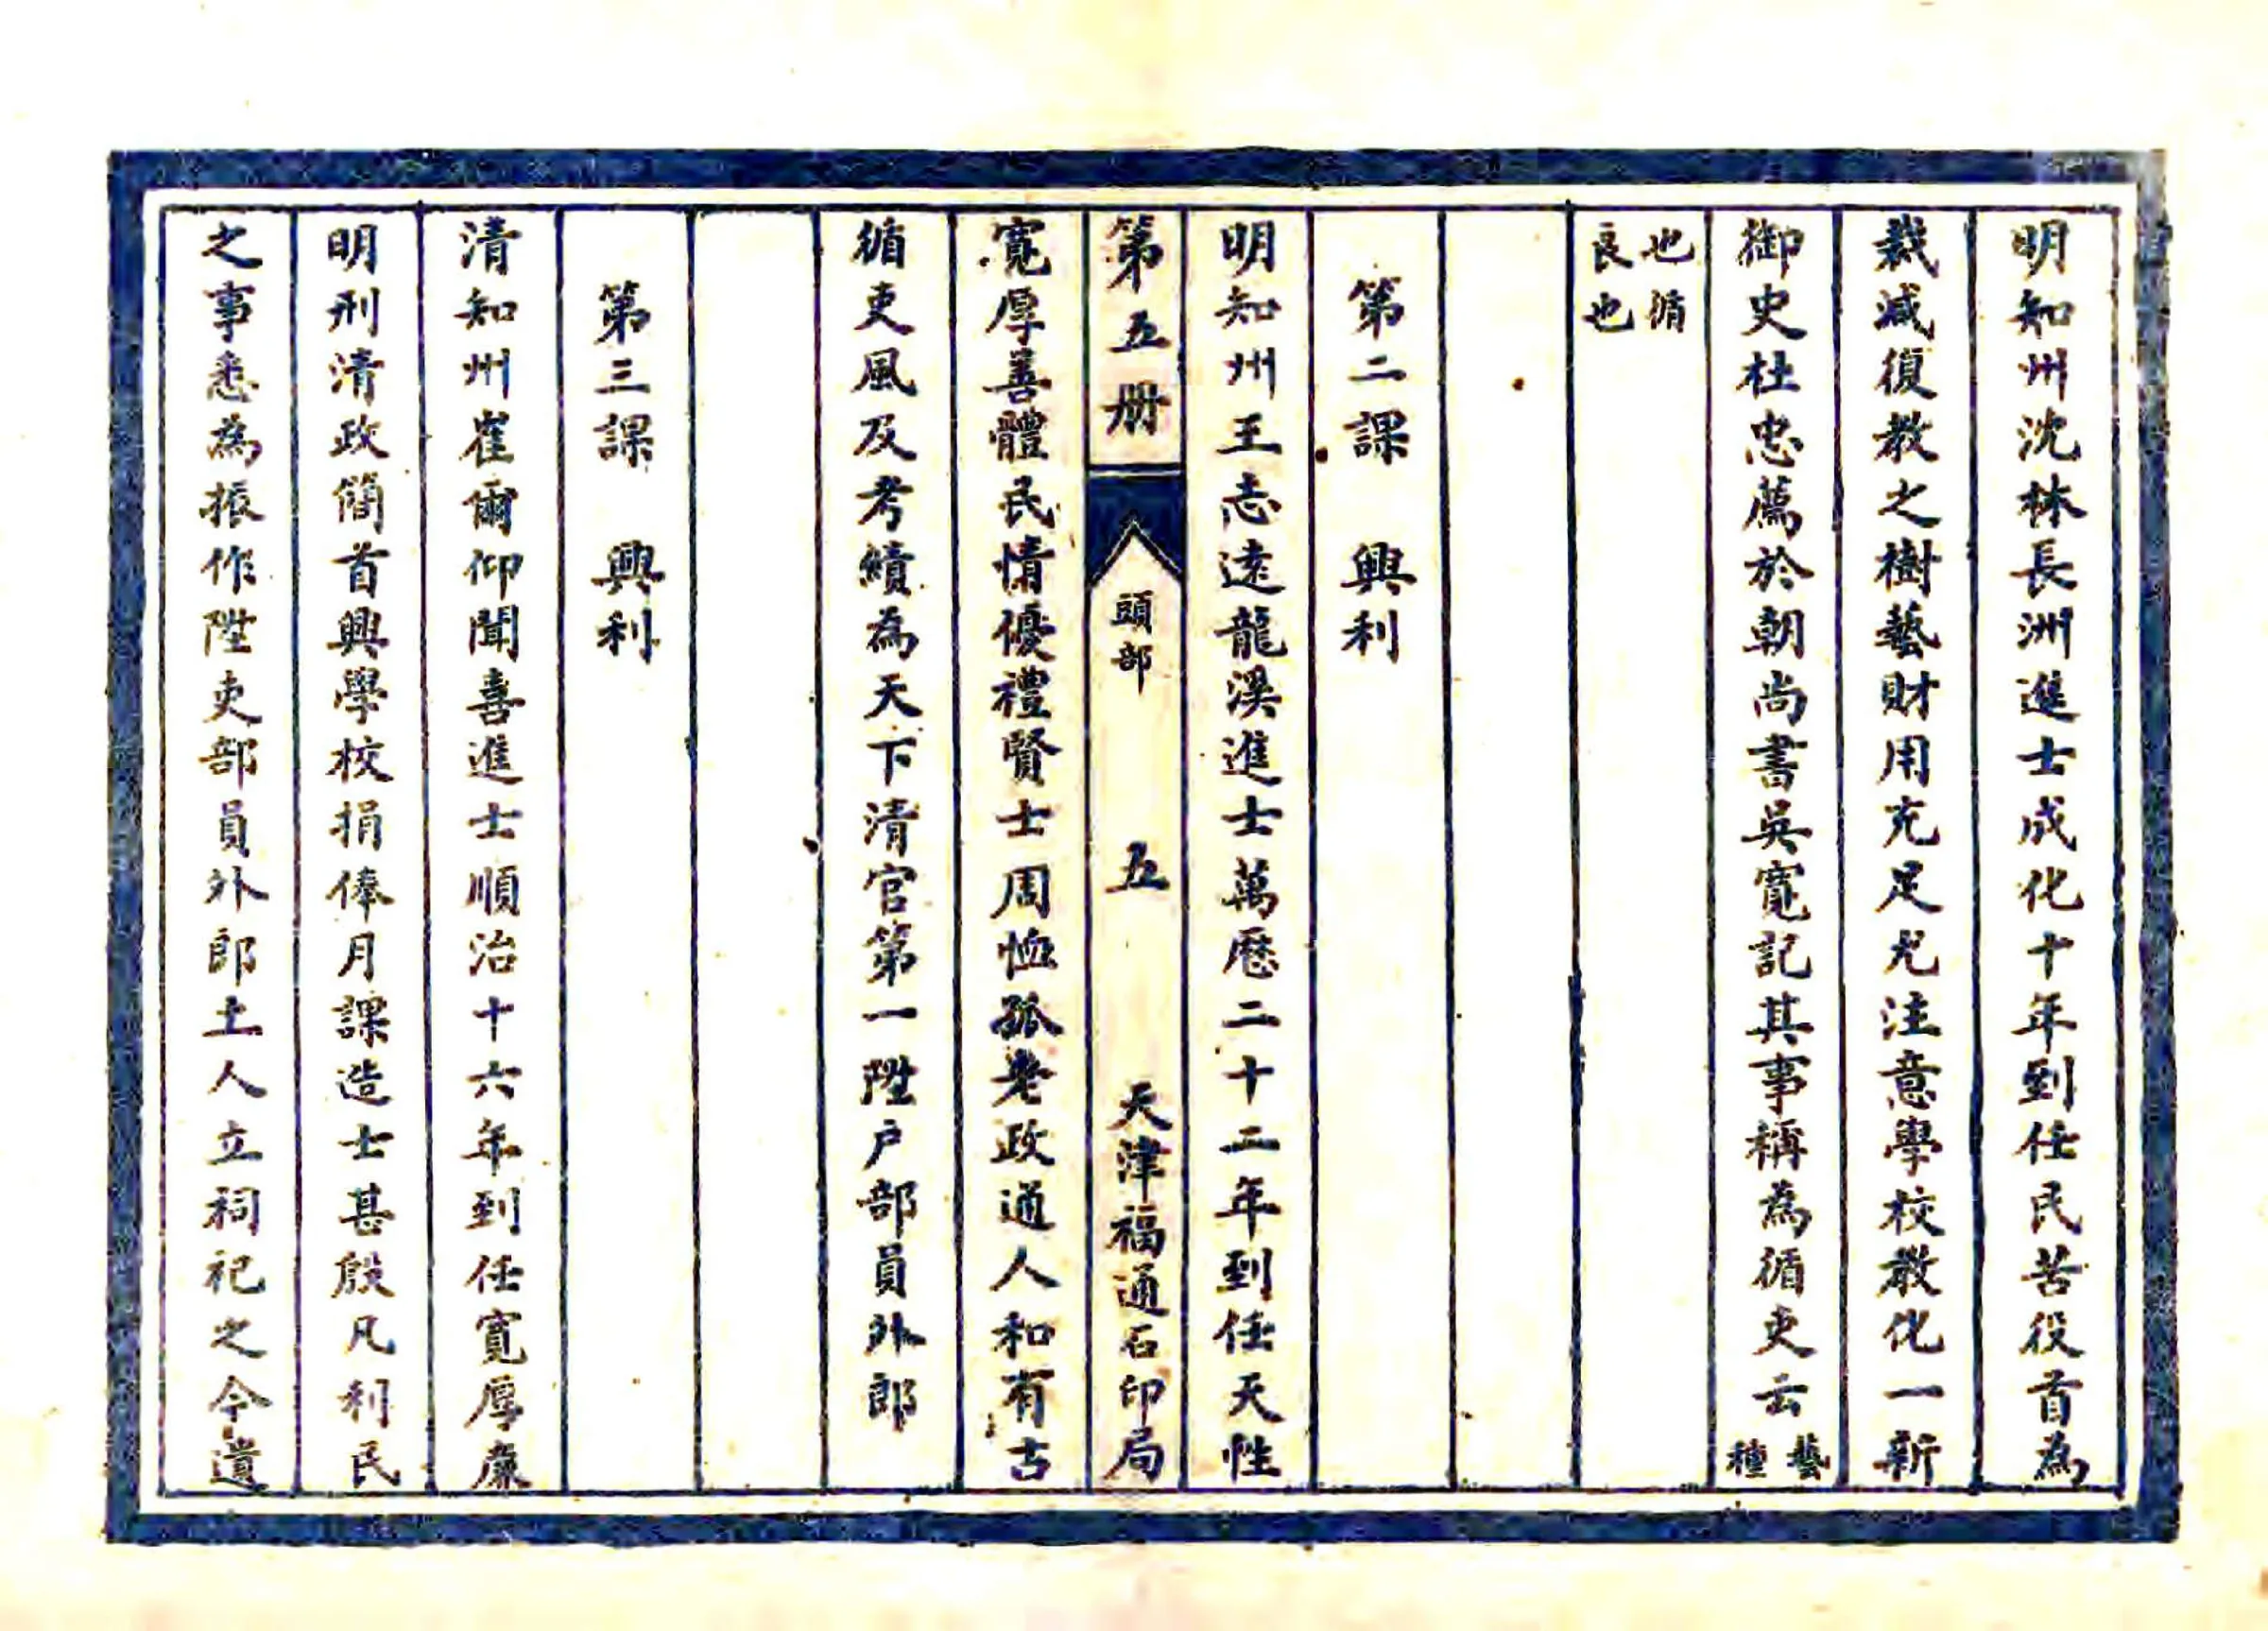 明知州沈林長洲進士成化十年到任民苦役首為
裁減復教之樹藝財用充足尤注意學校教化一新
御史杜忠薦於朝尚書吳寬記其事稱為循吏云藝種
也循良也
第二課 興利
明知州王志遠龍溪進士萬厯二十二年到任天性
第五册 頭部 五 天津福通石印局
寬厚善體民情優禮賢士周恤孤老政通人和有古
循吏風及考績為天下清官第一陞户部員外郎
第三課 興利
清知州崔爾仰聞喜進士順治十六年到任寬厚廉
明刑清政簡首興學校捐俸月課造士甚殷凡利民
之事悉為振作陞吏部員外郎土人立祠祀之今遺